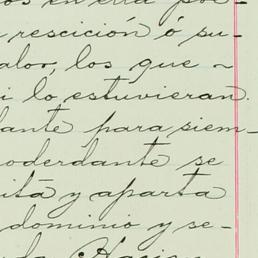 os en ella po-
rescición ó su-
alor, los que
i lo estuvieran.
ante para siem-
oderdante se
ita y aparta
dominio y se-